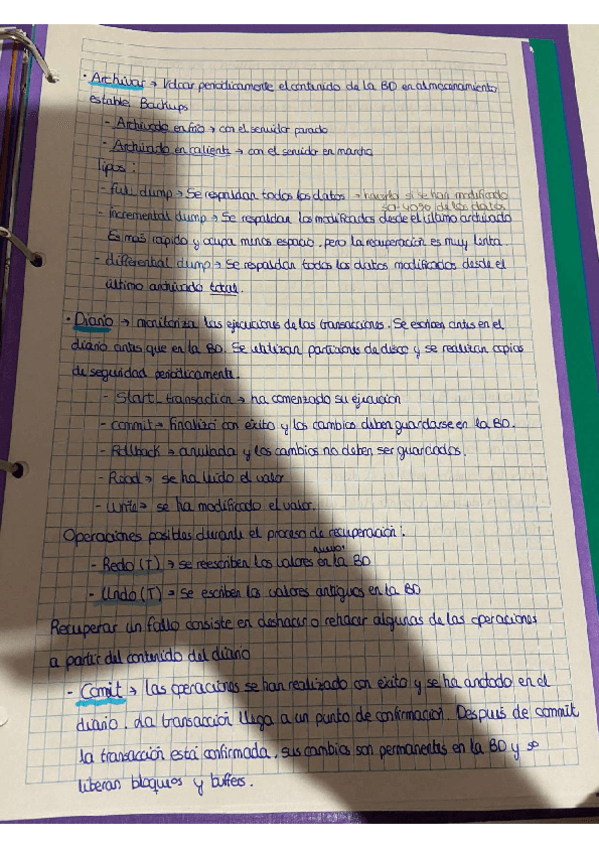 · Archivar → Volcar periodicamente el contenido de la BD en almacenamiento
estable. Backups
- Archivado en frío → con el servidor parado
- Archivado en caliente → con el servidor en marcha
Tipos:
- Full dump → Se respaldan todos los datos → hacerlo si se han modificado
30-40% de los datos
- incremental dump → Se respaldan los modificados desde el último archivado
Es más rápido y ocupa menos espacio, pero la recuperación es muy lenta.
- differential dump → Se respaldan todos los datos modificados desde el
último archivado total.
· Diario → monitoriza las ejecuciones de las transacciones. Se escriben antes en el
diario antes que en la BD. Se utilizan particiones de disco y se realizan copias
de seguridad periodicamente.
- Start_transaction → ha comenzado su ejecución
- commit → Finalizó con éxito y los cambios deben guardarse en la BD.
- Rollback → anulada y los cambios no deben ser guardados.
- Read → se ha leído el valor
- Write → se ha modificado el valor.
Operaciones posibles durante el proceso de recuperación:
- Redo (T) → se reescriben los valores nuevos en la BD
- Undo (T) → Se escriben los valores antiguos en la BD
Recuperar un fallo consiste en deshacer o rehacer algunas de las operaciones
a partir del contenido del diario
- Comit → las operaciones se han realizado con éxito y se ha anotado en el
diario. La transacción llega a un punto de confirmación. Después de commit
la transacción está confirmada, sus cambios son permanentes en la BD y se
liberan bloqueos y buffers.